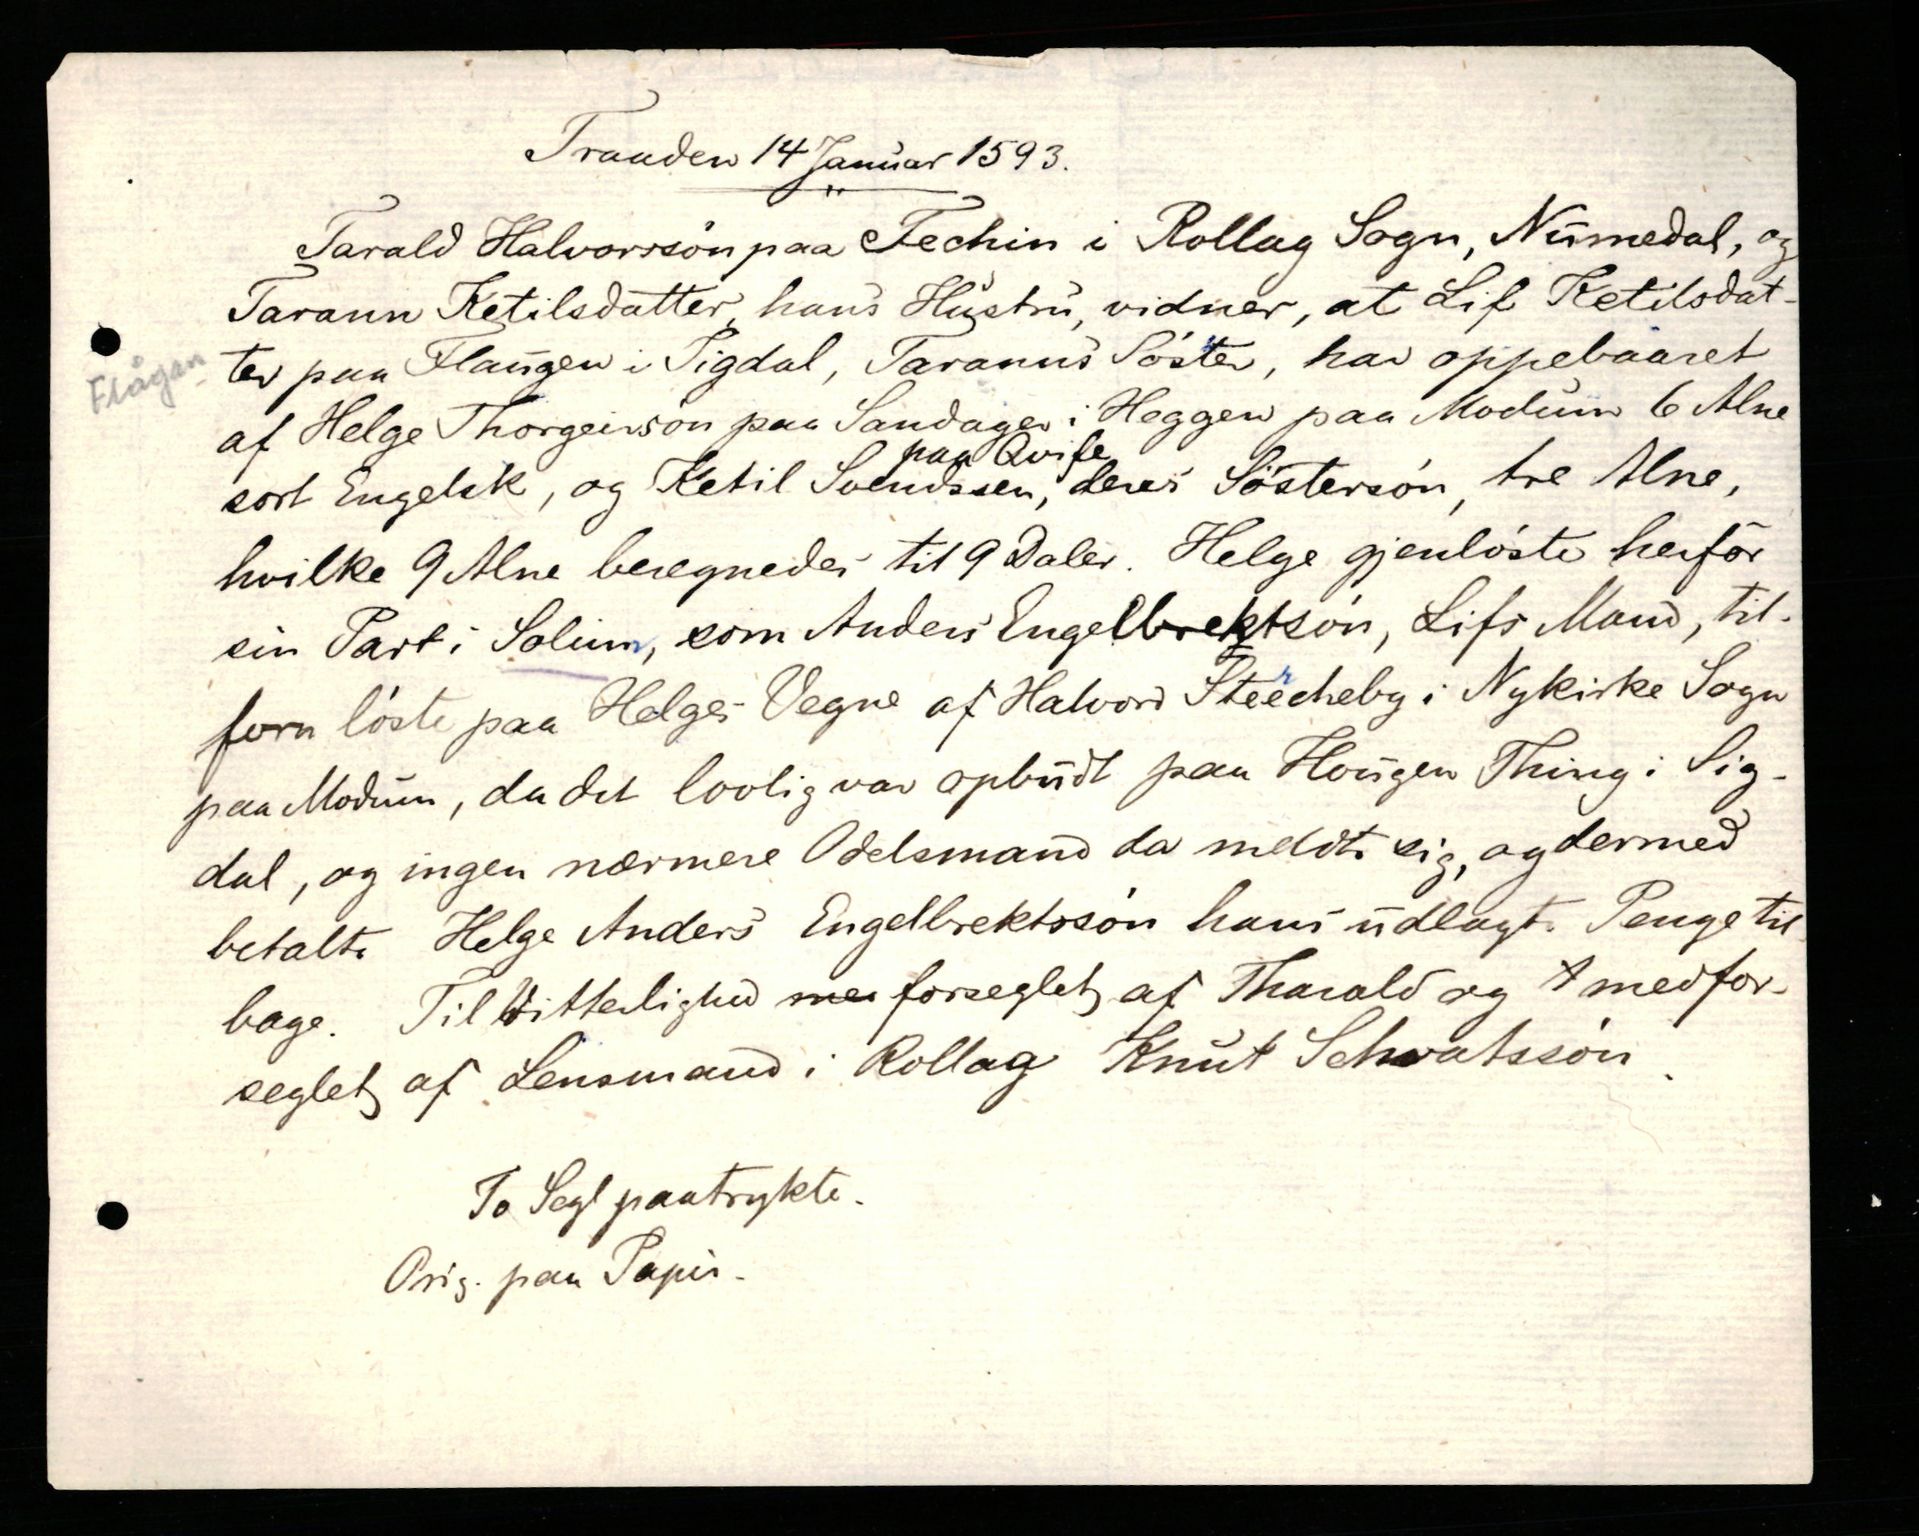 Traaden 14 Januar 1593.
Tarald Halvorssön paa Fechin i Rollag Sogn, Numedal, og
Tarann Ketilsdatter, hans Hustru, vidner, at Lif Ketilsdat-
ter paa Flaugen i Sigdal, Taranns Söster, har oppebaaret
Flågan
af Helge Thorgeirsön paa Sandager i Heggen paa Modum 6 Alne
paa Qvife
sort Engelsk, og Ketil Svendssen, deres Söstersön, tre Alne,
hvilke 9 Alne beregnedes til 9 Daler. Helge gjenlöste herfor
sin Part i Solium, som Anders Engelbrektsön, Lifs Mand, til-
forn löste paa Helges Vegne af Halvord Steercheby i Nykirke Sogn
paa Modum, da det lovlig var opbudt paa Hougen Thing i Sig-
dal, og ingen nærmere Odelsmand da meldte sig, og dermed
betalte Helge Anders Engelbrektssön hans udlagte Penge til-
bage. Til Vitterlighed forseglet af Tharald og medfor-
seglet af Lensmand i Rollag Knut Schwatssön.
To Segl paatrykte.
Orig. paa Papir.